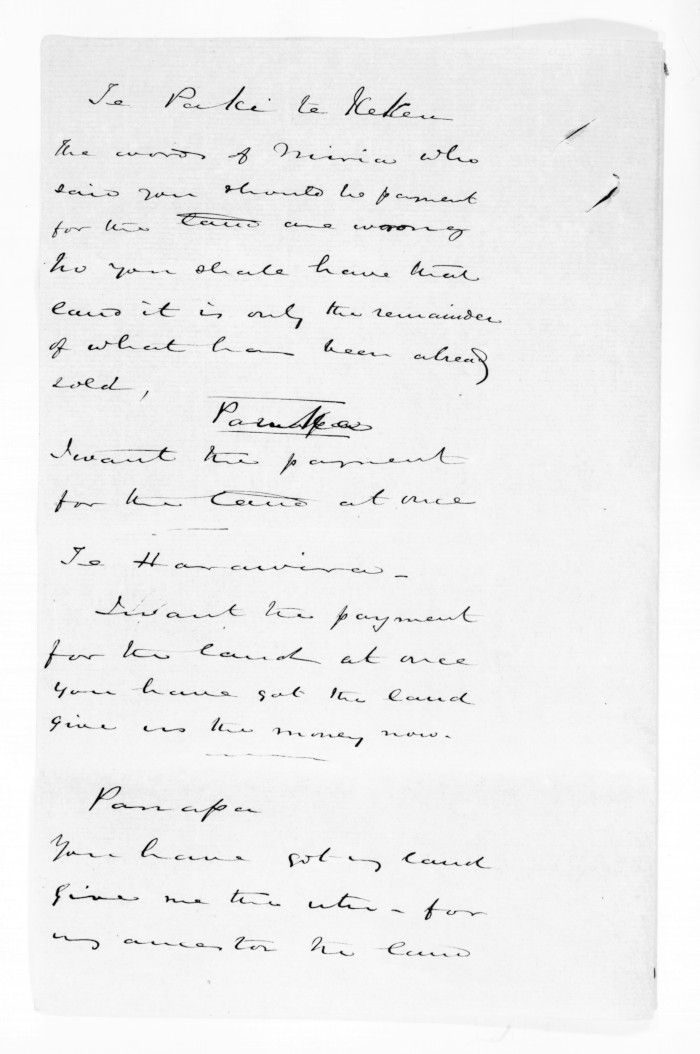 Te Paki te Keken
the words of Miria who
said you should be payment
for the land are wrong
No you shall have that
land it is only the remainder
of what has been already
sold,
I want the payment
for the land at once
Te Harawira -
I want the payment
for the land at once
you have got the land
give us the money now.
Panapa
You have got my land
give me the utu - for
my ancestor the land